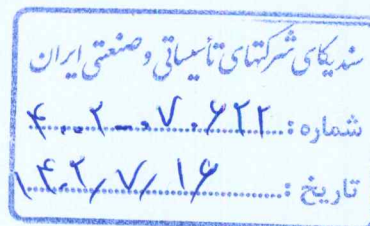 سندیکای شرکتهای تأسیساتی و صنعتی ایران
شماره : ۴۰۲-۰۷۰۶۲۲
تاریخ : ۱۴۰۲/۷/۱۶